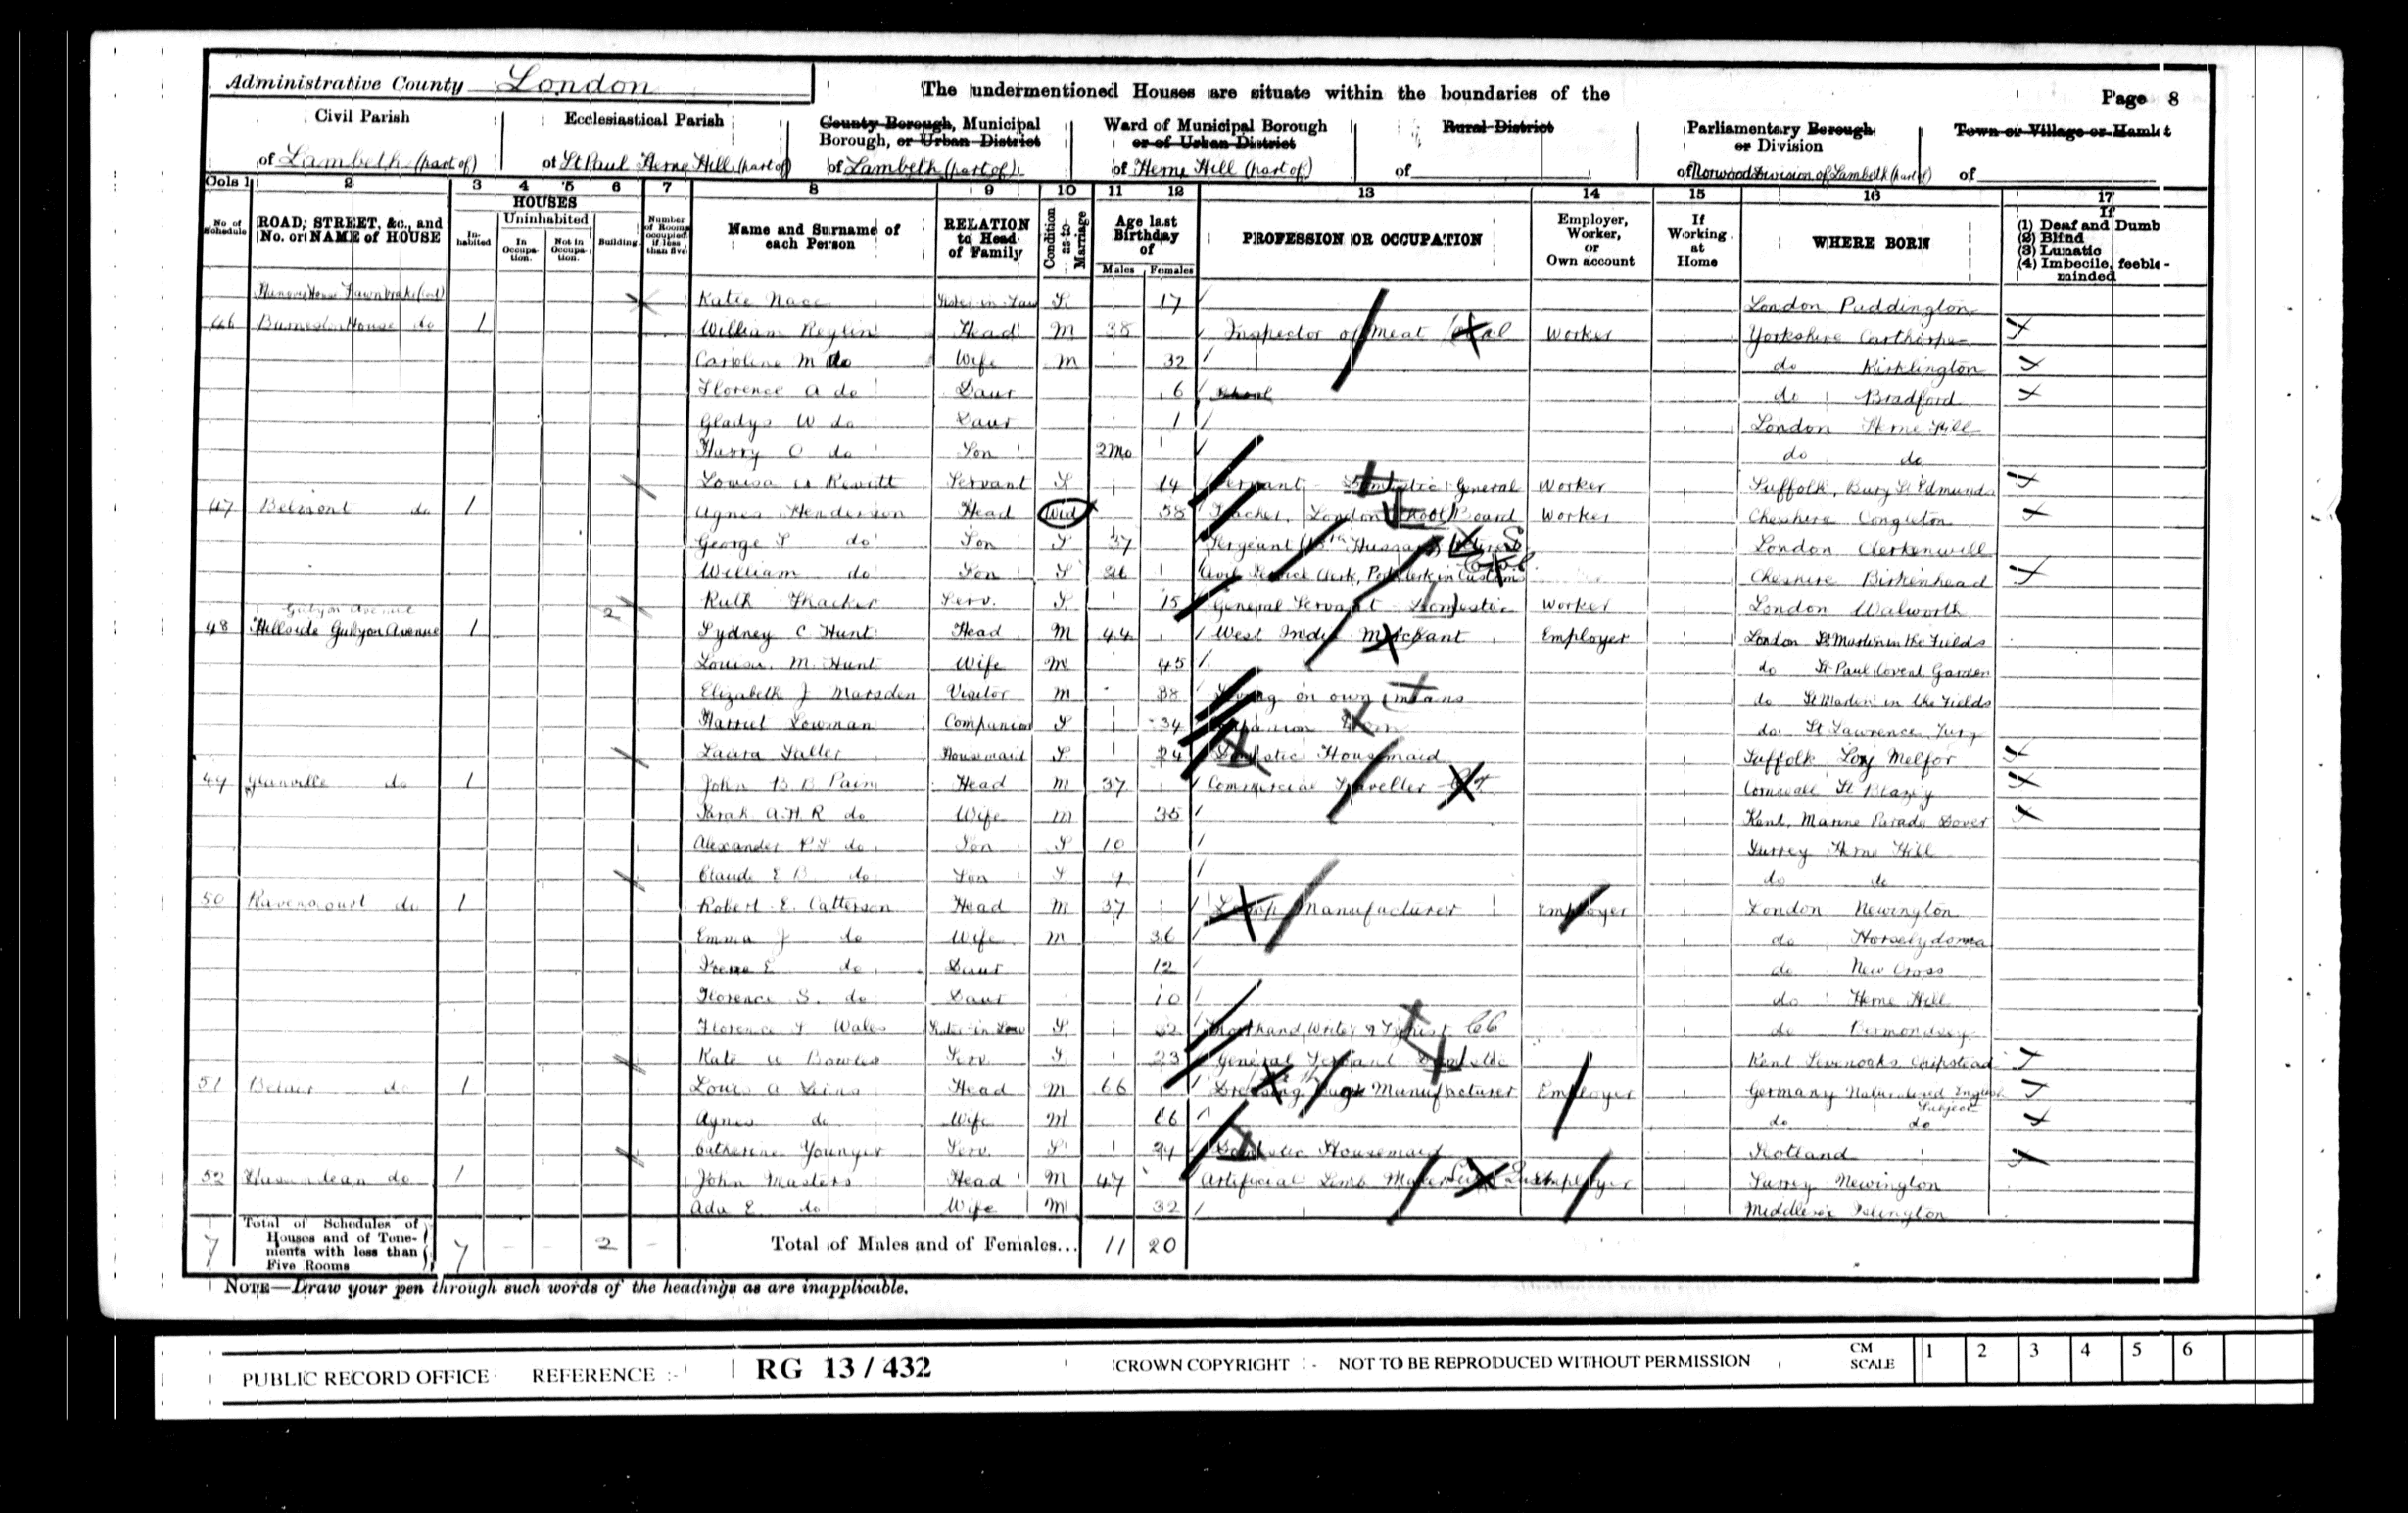 Administrative County London
The undermentioned Houses are situate within the boundaries of the
Page 8
Civil Parish of Lambeth (part of)
Ecclesiastical Parish of St Paul Herne Hill (part of)
County Borough, Municipal Borough, or Urban District of Lambeth (part of)
Ward of Municipal Borough or of Urban District of Herne Hill (part of)
Rural District of
Parliamentary Borough or Division of Norwood Division of Lambeth (part of)
Town or Village or Hamlet of
Cols 1 2 3 4 5 6 7 8 9 10 11 12 13 14 15 16 17
No of Schedule
ROAD, STREET, &c., and No. or NAME of HOUSE
HOUSES
In-habited
Uninhabited
In Occupa-tion.
Not in Occupa-tion.
Building
Number of Rooms occupied if less than five
Name and Surname of each Person
RELATION to Head of Family
Condition as to Marriage
Age last Birthday of
Males Females
PROFESSION OR OCCUPATION
Employer, Worker, or Own account
If Working at Home
WHERE BORN
If
(1) Deaf and Dumb
(2) Blind
(3) Lunatic
(4) Imbecile, feeble-minded
Katie Sister in Law S 17 London Paddington
46 House do 1 William Head M 38 Inspector of Meat Worker Yorkshire Carthorpe
Caroline M do Wife M 32 do Kirklington
Florence A do Daur 6 School do Bradford
Gladys W do Daur 1 London Herne Hill
Harry O do Son 2 Mo do do
Louisa A Servant S 14 Servant Domestic General Worker Suffolk, Bury St Edmunds
47 Belmont do 1 Agnes Henderson Head Wid 58 Teacher, London School Board Worker Cheshire Congleton
George S do Son S 37 Sergeant Hussars London Clerkenwell
William do Son S 26 Civil Service Clerk, Port Clerk in Customs Cheshire Birkenhead
Gubyon Avenue 2 Ruth Thacker Serv. S 15 General Servant Domestic Worker London Walworth
48 Hillside Gubyon Avenue 1 Sydney C Hunt Head M 44 West India Merchant Employer London St Martin in the Fields
Louisa M. Hunt Wife M 45 do St Paul Covent Garden
Elizabeth J Marsden Visitor M 38 Living on own means do St Martin in the Fields
Harriet Lowman Companion S 34 Companion do St Lawrence Jury
Laura Salter Housemaid S 24 Domestic Housemaid Suffolk Long Melfor
49 Granville do 1 John B B Pain Head M 37 Commercial Traveller Cornwall St Blazey
Sarah A.H.R do Wife M 35 Kent, Marine Parade Dover
Alexander P.S do Son S 10 Surrey Herne Hill
Claude E B do Son S 9 do do
50 Ravenscourt do 1 Robert E. Catterson Head M 37 Manufacturer Employer London Newington
Emma J do Wife M 36 do Horselydown
Irene E do Daur 12 do New Cross
Florence S. do Daur 10 do Herne Hill
Florence Wales Sister in Law S Shorthand Writer & Typist do Bermondsey
Kate A Bowles Serv S 23 General Servant Domestic Kent Sevenoaks Chipstead
51 Belair do 1 Louis A Head M 66 Dressing Manufacturer Employer Germany Naturalized English Subject
Agnes do Wife M 66 do do
Catherine Younger Serv S 24 Domestic Housemaid Scotland
52 do 1 John Masters Head M 47 Artificial Limb Maker Employer Surrey Newington
Ada E. do Wife M 32 Middlesex Islington
7 Total of Schedules of Houses and of Tene-ments with less than Five Rooms 7 - - 2 - Total of Males and of Females... 11 20
NOTE—Draw your pen through such words of the headings as are inapplicable.
PUBLIC RECORD OFFICE REFERENCE :- RG 13 / 432 CROWN COPYRIGHT :- NOT TO BE REPRODUCED WITHOUT PERMISSION CM SCALE 1 2 3 4 5 6